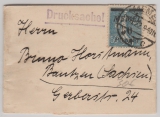 Drucksache!
Herrn
Benno Horstmann
Bautzen (Sachsen)
Gerberstr. 24